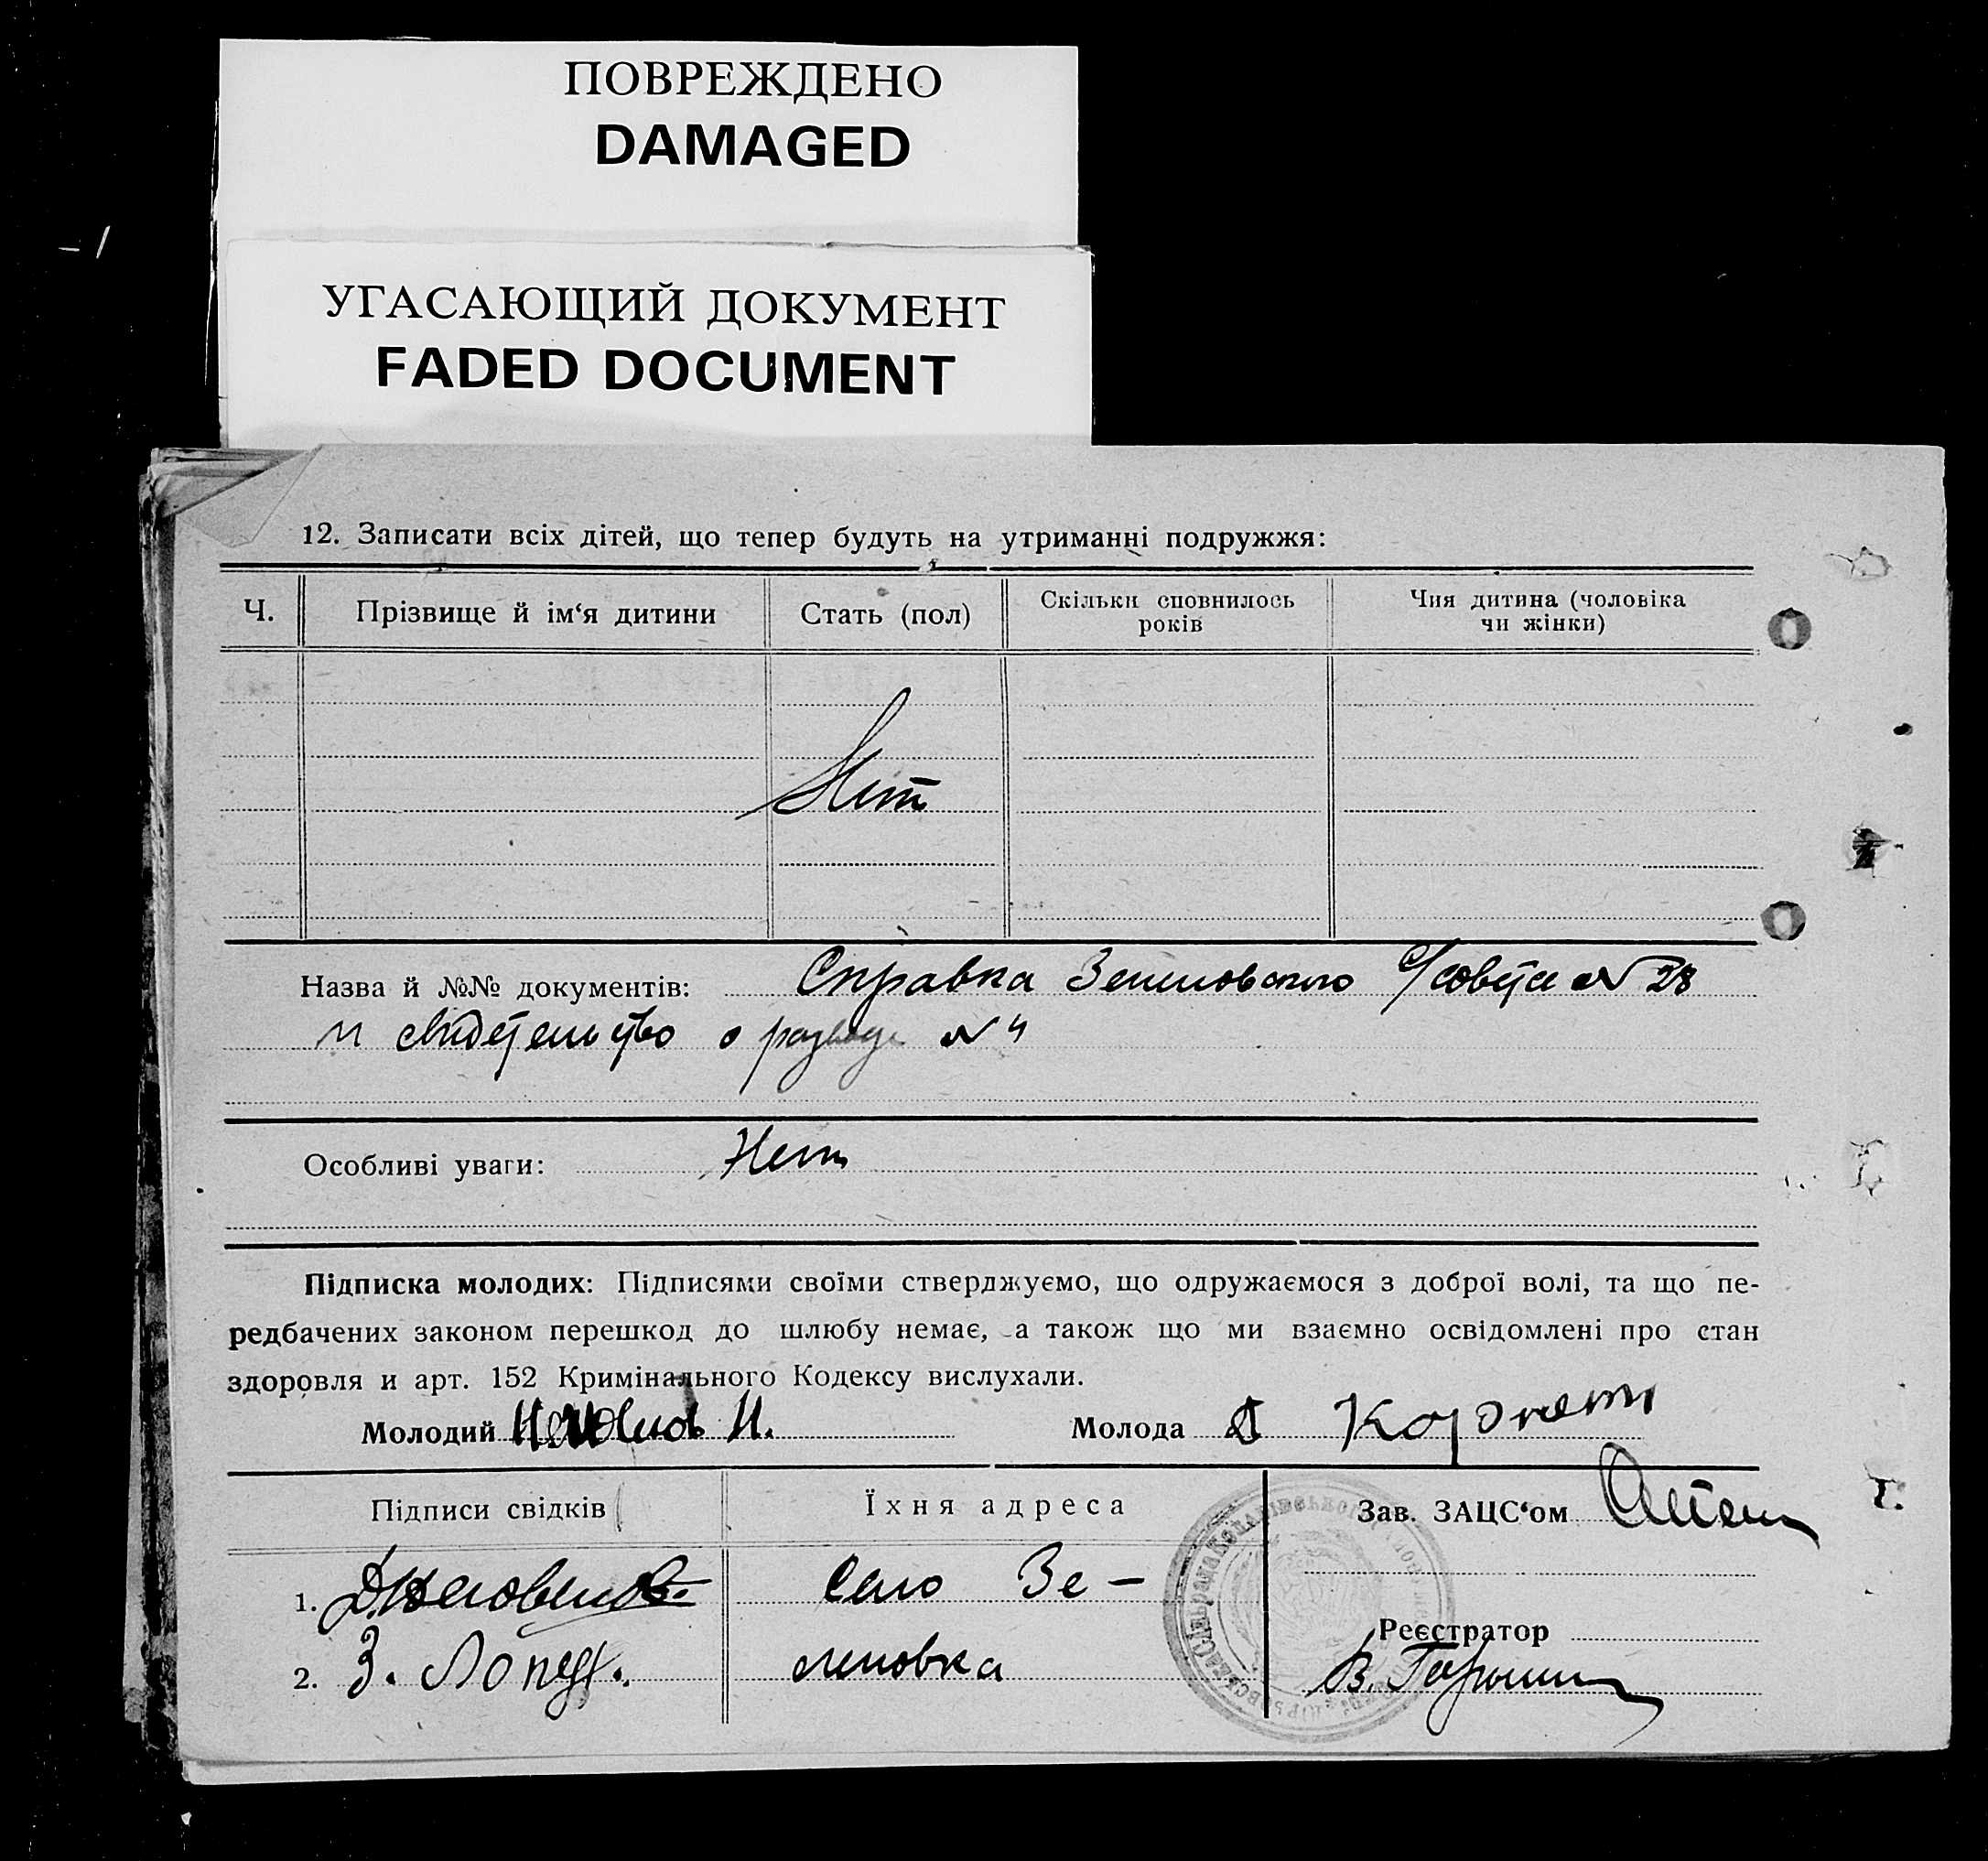 ПОВРЕЖДЕНО
DAMAGED
УГАСАЮЩИЙ ДОКУМЕНТ
FADED DOCUMENT
12. Записати всіх дітей, що тепер будуть на утриманні подружжя:
Ч. Прізвище й ім‘я дитини Стать (пол) Скільки сповнилось років Чия дитина (чоловіка чи жінки)
Нет
Назва й №№ документів: Справка с/совета N 28
и свидетельство о разводе N 4
Особливі уваги: Нет
Підписка молодих: Підписями своїми стверджуємо, що одружаємося з доброї волі, та що пе-
редбачених законом перешкод до шлюбу немає, а також що ми взаємно освідомлені про стан
здоровля и арт. 152 Кримінального Кодексу вислухали.
Молодий Молода
Підписи свідків Їхня адреса Зав. ЗАЦС‘ом
1. Село Зе-
Реєстратор
2. З. леновка